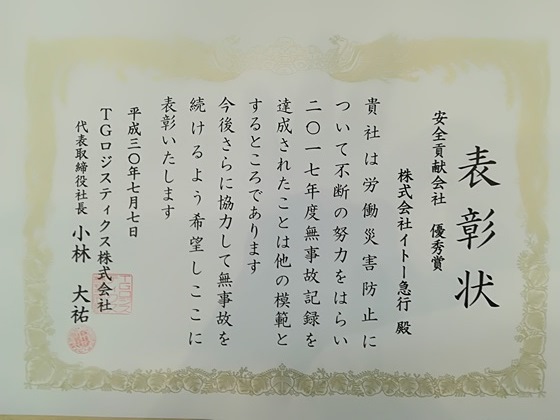 表彰状
安全貢献会社 優秀賞
株式会社イトー急行 殿
貴社は労働災害防止に
ついて不断の努力をはらい
二〇一七年度無事故記録を
達成されたことは他の模範と
するところであります
今後さらに協力して無事故を
続けるよう希望しここに
表彰いたします
平成三〇年七月七日
TGロジスティクス株式会社
代表取締役社長 小林 大祐